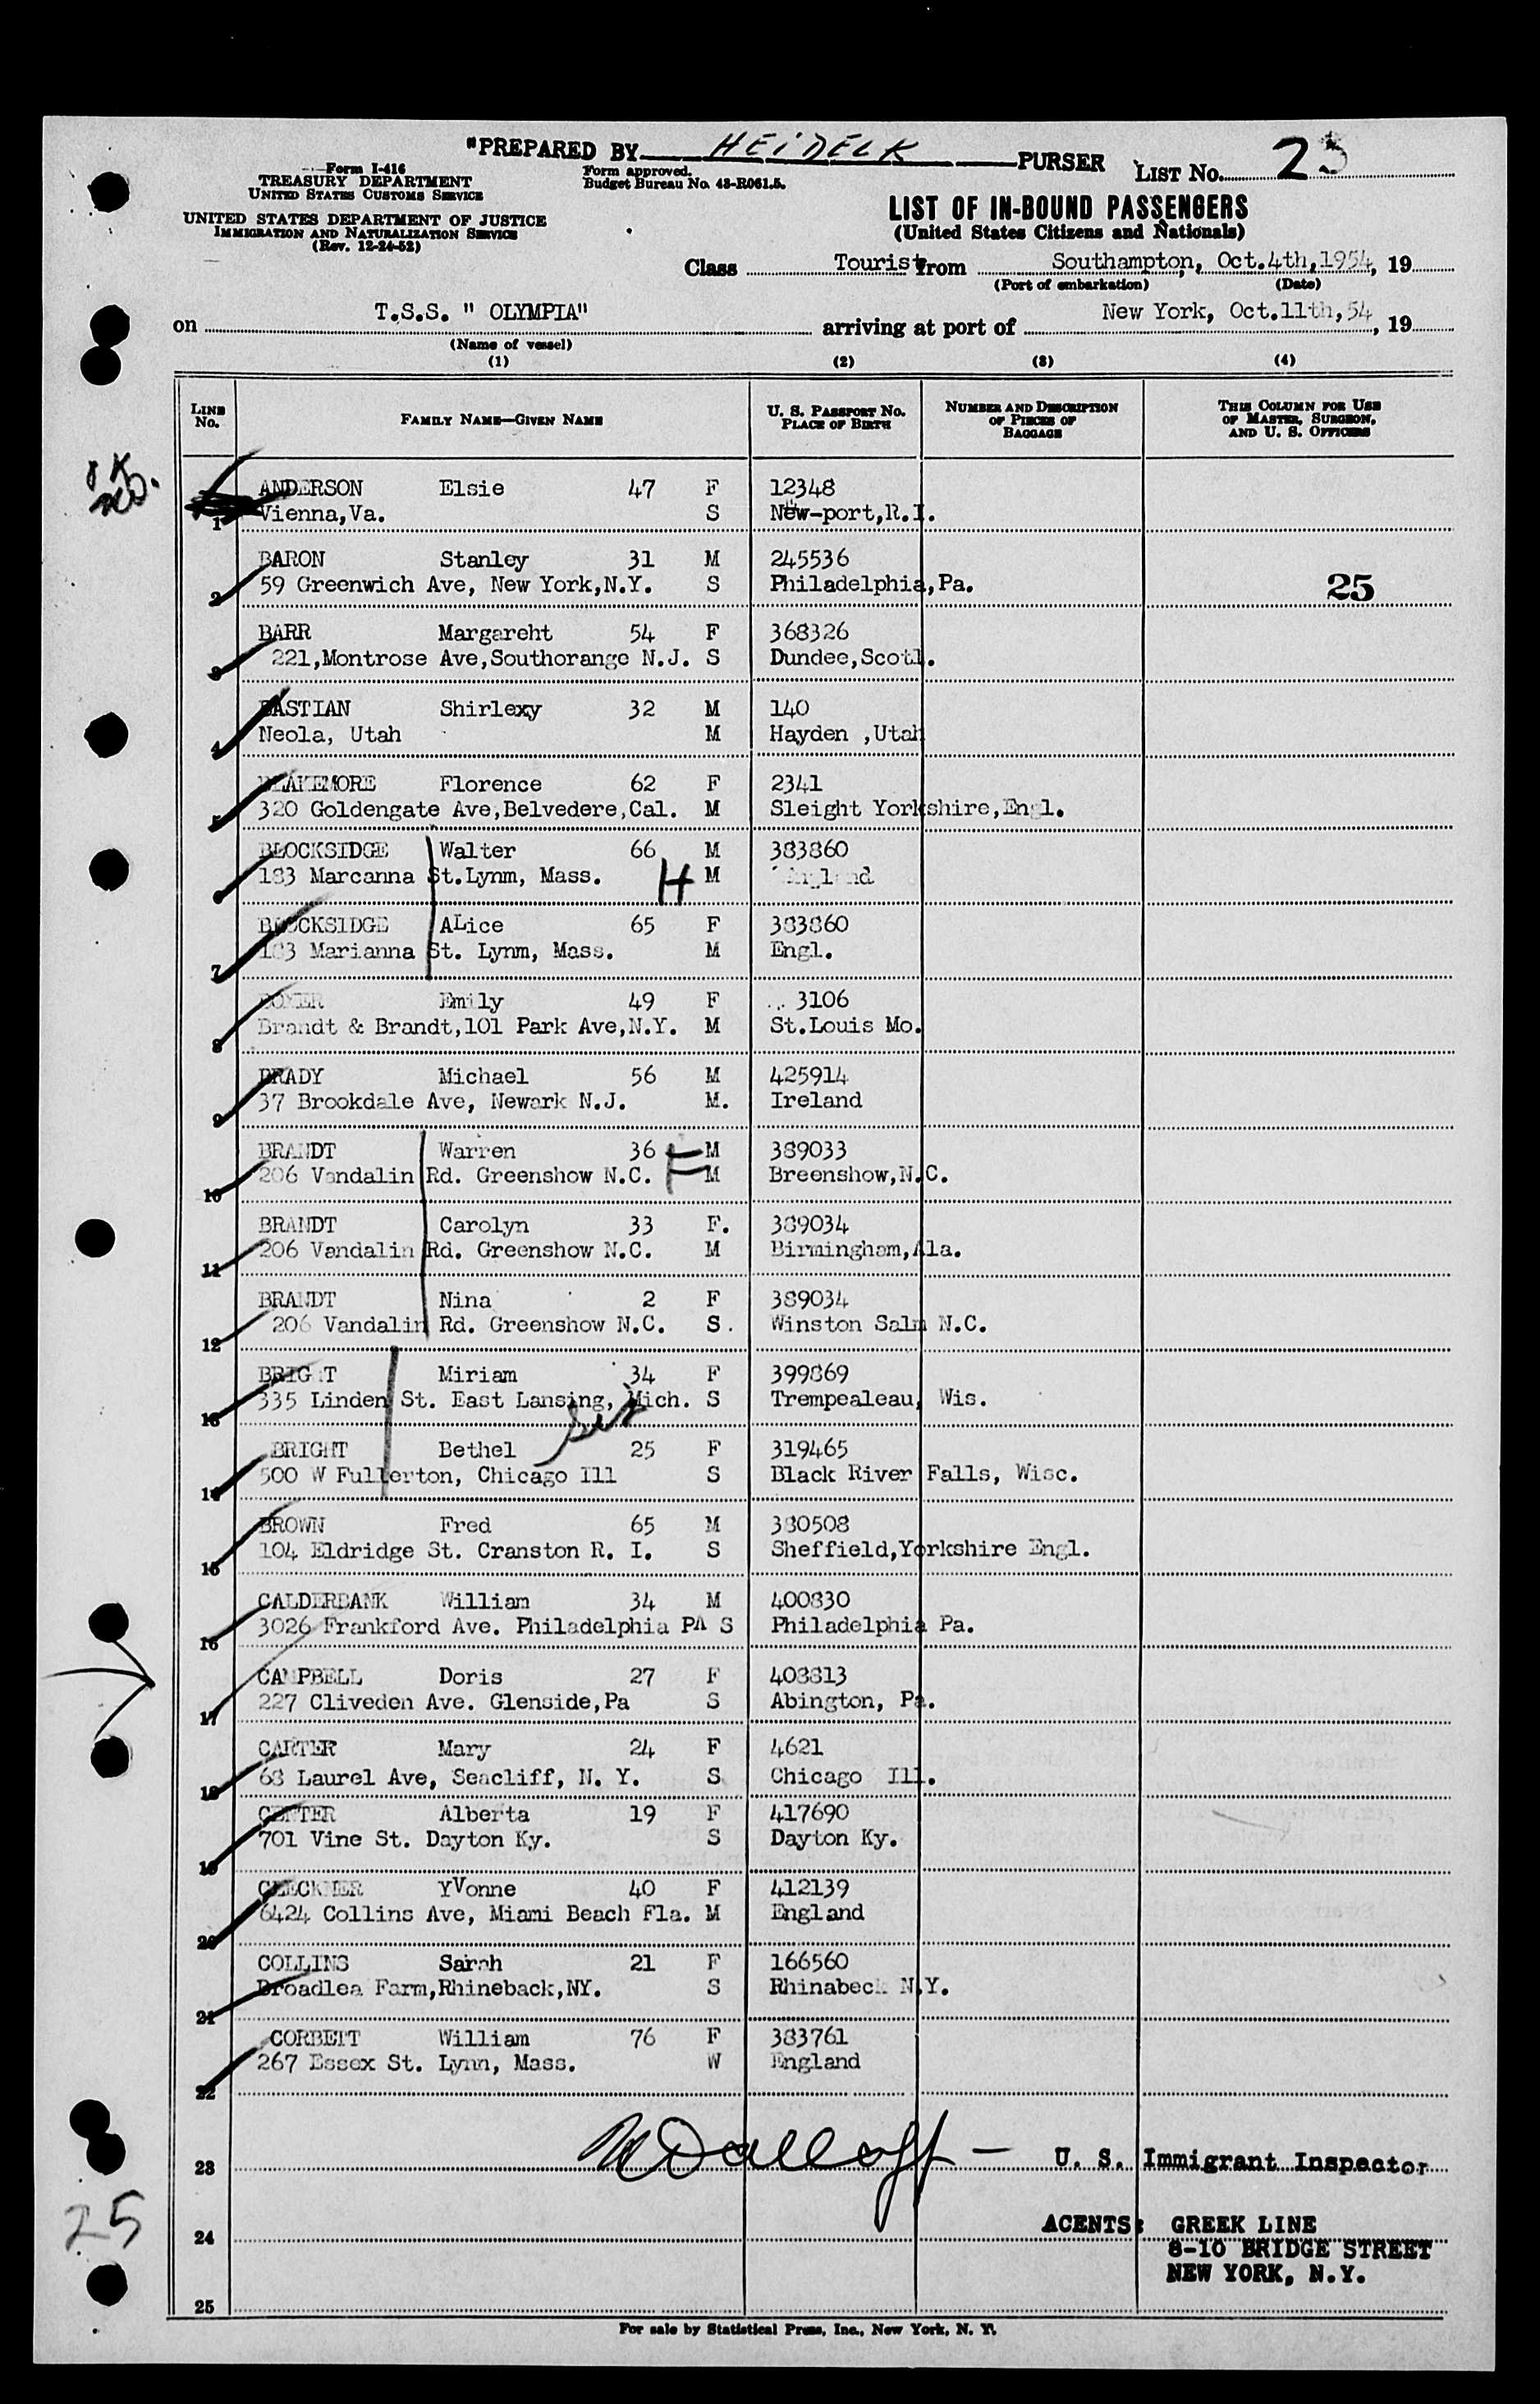 "PREPARED BY HEIDELK PURSER LIST NO. 25
Form I-416
TREASURY DEPARTMENT
UNITED STATES CUSTOMS SERVICE
Form approved.
Budget Bureau No. 43-R061.5.
UNITED STATES DEPARTMENT OF JUSTICE
IMMIGRATION AND NATURALIZATION SERVICE
(Rev. 12-24-52)
LIST OF IN-BOUND PASSENGERS
(United States Citizens and Nationals)
Class Tourist from Southampton, Oct.4th,1954, 19
(Port of embarkation) (Date)
on T.S.S. " OLYMPIA" arriving at port of New York, Oct.11th,54, 19
(Name of vessel)
(1) (2) (3) (4)
LINE No. FAMILY NAME—GIVEN NAME U. S. PASSPORT NO. PLACE OF BIRTH NUMBER AND DESCRIPTION OF PIECES OF BAGGAGE THIS COLUMN FOR USE OF MASTER, SURGEON, AND U. S. OFFICERS
ANDERSON Elsie 47 F 12348
1 Vienna,Va. S New-port,R.I.
BARON Stanley 31 M 245536
2 59 Greenwich Ave, New York,N.Y. S Philadelphia,Pa. 25
BARR Margareht 54 F 368326
3 221,Montrose Ave,Southorange N.J. S Dundee,Scotl.
BASTIAN Shirlexy 32 M 140
4 Neola, Utah M Hayden ,Utah
BLAKEMORE Florence 62 F 2341
5 320 Goldengate Ave,Belvedere,Cal. M Sleight Yorkshire,Engl.
BLOCKSIDGE Walter 66 M 383860
6 183 Marcanna St.Lynm, Mass. H M England
BLOCKSIDGE ALice 65 F 383860
7 183 Marianna St. Lynm, Mass. M Engl.
Emily 49 F 3106
8 Brandt & Brandt,101 Park Ave,N.Y. M St.Louis Mo.
BRADY Michael 56 M 425914
9 37 Brookdale Ave, Newark N.J. M. Ireland
BRANDT Warren 36 M 389033
10 206 Vandalin Rd. Greenshow N.C. F M Breenshow,N.C.
BRANDT Carolyn 33 F. 389034
11 206 Vandalin Rd. Greenshow N.C. M Birmingham,Ala.
BRANDT Nina 2 F 389034
12 206 Vandalin Rd. Greenshow N.C. S. Winston Salm N.C.
BRIGHT Miriam 34 F 399869
13 335 Linden St. East Lansing, Mich. S Trempealeau, Wis.
sis
BRIGHT Bethel 25 F 319465
14 500 W Fullerton, Chicago Ill S Black River Falls, Wisc.
BROWN Fred 65 M 380508
15 104 Eldridge St. Cranston R. I. S Sheffield,Yorkshire Engl.
CALDERBANK William 34 M 400830
16 3026 Frankford Ave. Philadelphia PA S Philadelphia Pa.
CAMPBELL Doris 27 F 408813
17 227 Cliveden Ave. Glenside,Pa S Abington, Pa.
CARTER Mary 24 F 4621
18 68 Laurel Ave, Seacliff, N. Y. S Chicago Ill.
CENTER Alberta 19 F 417690
19 701 Vine St. Dayton Ky. S Dayton Ky.
CLECKNER YVonne 40 F 412139
20 6424 Collins Ave, Miami Beach Fla. M England
COLLINS Sarah 21 F 166560
21 Broadlea Farm,Rhineback,NY. S Rhinabeck N.Y.
CORBETT William 76 F 383761
22 267 Essex St. Lynn, Mass. W England
23 U. S. Immigrant Inspector
24 AGENTS: GREEK LINE
8-10 BRIDGE STREET
NEW YORK, N.Y.
25
25
For sale by Statistical Press, Inc., New York, N. Y.